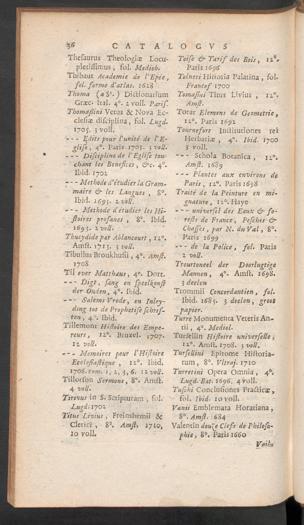 96 CATALOGVS
Thesaurus Theologiæ Locu-
pletissimus, fol. Mediob.
Thibaut Academie de l'Epée,
fol. forme d'atlas. 1628
Thoma (a St.) Dictionarium
Græc. Ital. 4°. 2 voll. Paris.
Thomassini Vetus & Nova Ec-
clesiæ disciplina, fol. Lugd.
1705. 3 voll.
--- Edits pour l'unité de l'E-
glise, 4°. Paris 1703. 2 voll.
--- Discipline de l'Eglise tou-
chant les Benefices, &c. 4°.
Ibid 1702
--- Methode d'étudier la Gram-
maire & les Langues, 8°.
Ibid. 1693. 2 voll.
--- Methode d'étudier les Hi-
stoires profanes, 8°. Ibid.
1693. 2 voll.
Thucydide par Ablancourt, 12°.
Amst. 1713. 3 voll.
Tibullus Broukhusii, 4°. Amst.
1708
Til over Mattheus, 4°. Dort.
--- Digt, sang en speelkunst
der Ouden, 4°. Ibid.
--- Salems Vrede, en Inley-
ding tot de Prophetise schrif-
ten, 4°. Ibid.
Tillemont Histoire des Empe-
reurs, 12°. Bruxel. 1707.
12 voll.
--- Memoires pour l'Histoire
Ecclesiastique, 12°. Ibid.
1706. tom. 1, 2, 3, 6. 12 voll.
Tillotson Sermons, 8°. Amst.
4 voll.
Tirinus in S. Scripturam, fol.
Lugd. 1702
Titus Livius, Freinshemii &
Clerici, 8°. Amst. 1710,
10 voll.
Toise & Tarif des Bois, 12°.
Paris 1696
Tolneri Historia Palatina, fol.
Francof 1700
Tomasini Titus Livius, 12°.
Amst.
Torar Elemens de Geometrie,
12°. Paris 1692
Tournefort Institutiones rei
Herbariæ, 4°. Ibid. 1700
3 voll.
--- Schola Botanica, 12°.
Amst. 1689
--- Plantes aux environs de
Paris, 12°. Paris 1698
Traité de la Peinture en mi-
gnature, 12°. Haye
--- universel des Eaux & fo-
rests de France, Pesches &
Chasses, par N. du Val, 8°.
Paris 1699
--- de la Police, fol. Paris
2 voll.
Trouttoneel der Doorlugtige
Mannen, 4°. Amst. 1698.
3 deelen
Trommii Concordantien, fol.
Ibid. 1685. 3 deelen, groot
papier.
Turre Monumenta Veteris An-
tii, 4°. Mediol.
Tursellin Histoire universelle,
12°. Amst. 1708. 3 voll.
Tursellini Epitome Historia-
rum, 8°. Ultraj. 1710
Turretini Opera Omnia, 4°.
Lugd. Bat. 1696. 4 voll.
Tuschi Conclusiones Practicæ,
fol. Ibid. 10 voll.
Vænii Emblemata Horatiana,
8°. Amst. 684
Valentin douze Clefs de Philoso-
phie, 8°. Paris 1660
Vailu